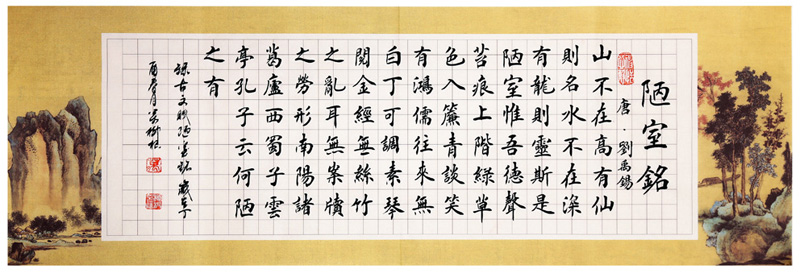 陋室銘
唐·劉禹錫
山不在高有仙
則名水不在深
有龍則靈斯是
陋室惟吾德馨
苔痕上階綠草
色入簾青談笑
有鴻儒往來無
白丁可調素琴
閱金經無絲竹
之亂耳無案牘
之勞形南陽諸
葛廬西蜀子雲
亭孔子云何陋
之有
錄古文陋室銘歲
酉春月